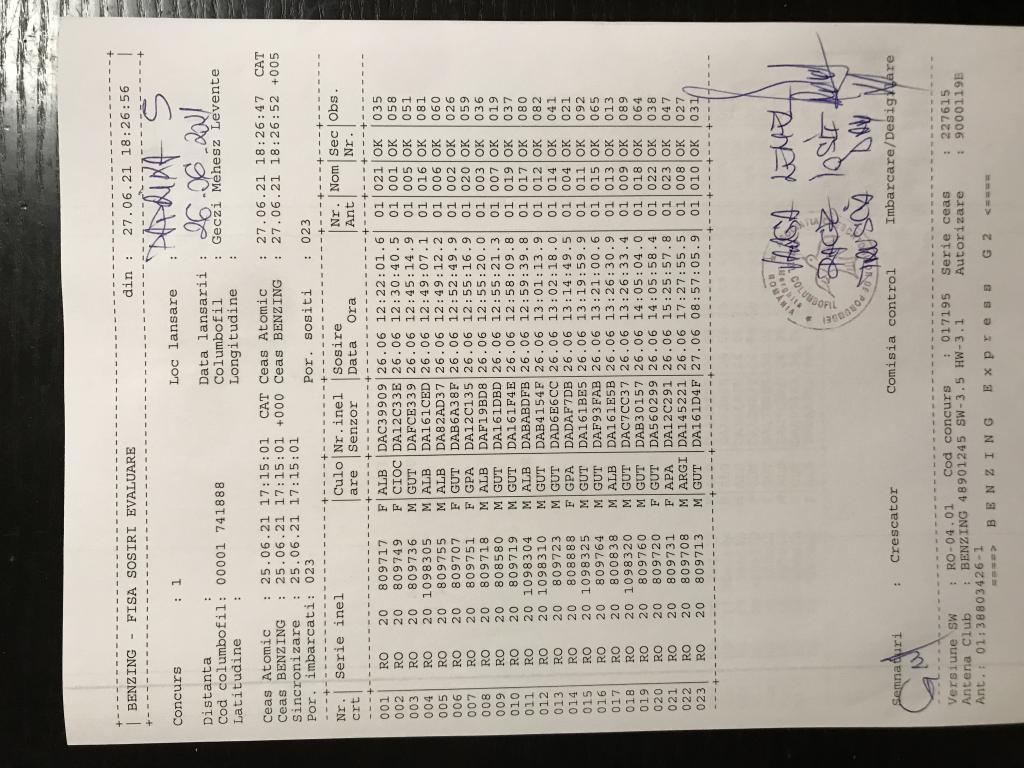 +-----------------------------------------------------------------------------+
| BENZING - FISA SOSIRI EVALUARE din : 27.06.21 18:26:56 |
+-----------------------------------------------------------------------------+
Concurs : 1 Loc lansare :
Distanta : Data lansarii : 26.06.2021
Cod columbofil: 00001 741888 Columbofil : Geczi Mehesz Levente
Latitudine : Longitudine :
Ceas Atomic : 25.06.21 17:15:01 CAT Ceas Atomic : 27.06.21 18:26:47 CAT
Ceas BENZING : 25.06.21 17:15:01 +000 Ceas BENZING : 27.06.21 18:26:52 +005
Sincronizare : 25.06.21 17:15:01
Por. imbarcati: 023 Por. sositi : 023
Nr. | Serie inel | Culo | Nr.inel | Sosire | Nr. | Nom | Sec | Obs.
crt | | are | Senzor | Data Ora | Ant | | Nr. |
001 | RO 20 809717 F | ALB | DAC39909 | 26.06 12:22:01.6 | 01 | 021 | OK | 035
002 | RO 20 809749 F | CIOC | DA12C33E | 26.06 12:30:40.5 | 01 | 001 | OK | 058
003 | RO 20 809736 M | GUT | DAFCE339 | 26.06 12:45:14.9 | 01 | 005 | OK | 051
004 | RO 20 1098305 M | ALB | DA161CED | 26.06 12:49:07.1 | 01 | 016 | OK | 081
005 | RO 20 809755 M | ALB | DA82AD37 | 26.06 12:49:12.2 | 01 | 006 | OK | 060
006 | RO 20 809707 F | GUT | DAB6A38F | 26.06 12:52:49.9 | 01 | 002 | OK | 026
007 | RO 20 809751 F | GPA | DA12C135 | 26.06 12:55:16.9 | 01 | 020 | OK | 059
008 | RO 20 809718 M | ALB | DAF19BD8 | 26.06 12:55:20.0 | 01 | 003 | OK | 036
009 | RO 20 808580 M | GUT | DA161DBD | 26.06 12:55:21.3 | 01 | 007 | OK | 019
010 | RO 20 809719 M | GUT | DA161F4E | 26.06 12:58:09.8 | 01 | 019 | OK | 037
011 | RO 20 1098304 M | ALB | DABABDFB | 26.06 12:59:39.8 | 01 | 017 | OK | 080
012 | RO 20 1098310 M | GUT | DAB4154F | 26.06 13:01:13.9 | 01 | 012 | OK | 082
013 | RO 20 809723 M | GUT | DAD6E6CC | 26.06 13:02:18.0 | 01 | 014 | OK | 041
014 | RO 20 808888 F | GPA | DADAF7DB | 26.06 13:14:49.5 | 01 | 004 | OK | 021
015 | RO 20 1098325 M | GUT | DA161BE5 | 26.06 13:19:59.9 | 01 | 011 | OK | 092
016 | RO 20 809764 M | GUT | DAF93FAB | 26.06 13:21:00.6 | 01 | 015 | OK | 065
017 | RO 20 800838 M | ALB | DA161E5B | 26.06 13:26:30.9 | 01 | 013 | OK | 013
018 | RO 20 1098320 M | GUT | DAC7CC37 | 26.06 13:26:33.4 | 01 | 009 | OK | 089
019 | RO 20 809760 M | GUT | DAB30157 | 26.06 14:05:04.0 | 01 | 018 | OK | 064
020 | RO 20 809720 F | GUT | DA560299 | 26.06 14:05:58.4 | 01 | 022 | OK | 038
021 | RO 20 809731 F | APA | DA12C291 | 26.06 15:25:57.8 | 01 | 023 | OK | 047
022 | RO 20 809708 M | ARGI | DA145221 | 26.06 17:27:55.5 | 01 | 008 | OK | 027
023 | RO 20 809713 M | GUT | DA161D4F | 27.06 08:57:05.9 | 01 | 010 | OK | 031
ROMÂNIA
COLUMBOFIL
Semnaturi : Crescator Comisia control Imbarcare/Designare
Versiune SW : RO-04.01 Cod concurs : 017195 Serie ceas : 227615
Antena Club : BENZING 48901245 SW-3.5 HW-3.1 Autorizare : 9000119B
Ant.: 01:38803426-1
====> B E N Z I N G E x p r e s s G 2 <====